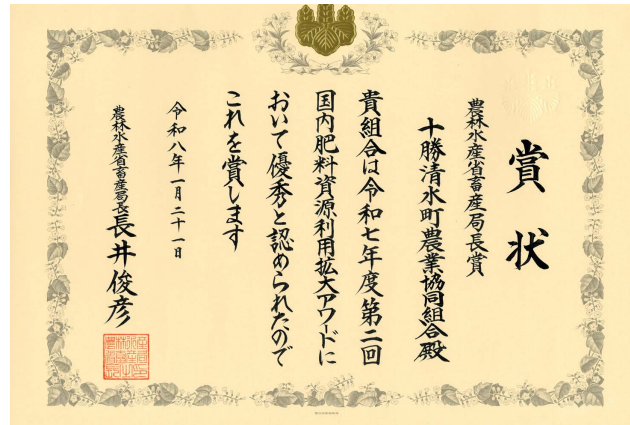 賞状
農林水産省畜産局長賞
十勝清水町農業協同組合殿
貴組合は令和七年度第二回
国内肥料資源利用拡大アワードに
おいて優秀と認められたので
これを賞します
令和八年一月二十一日
農林水産省畜産局長長井俊彦